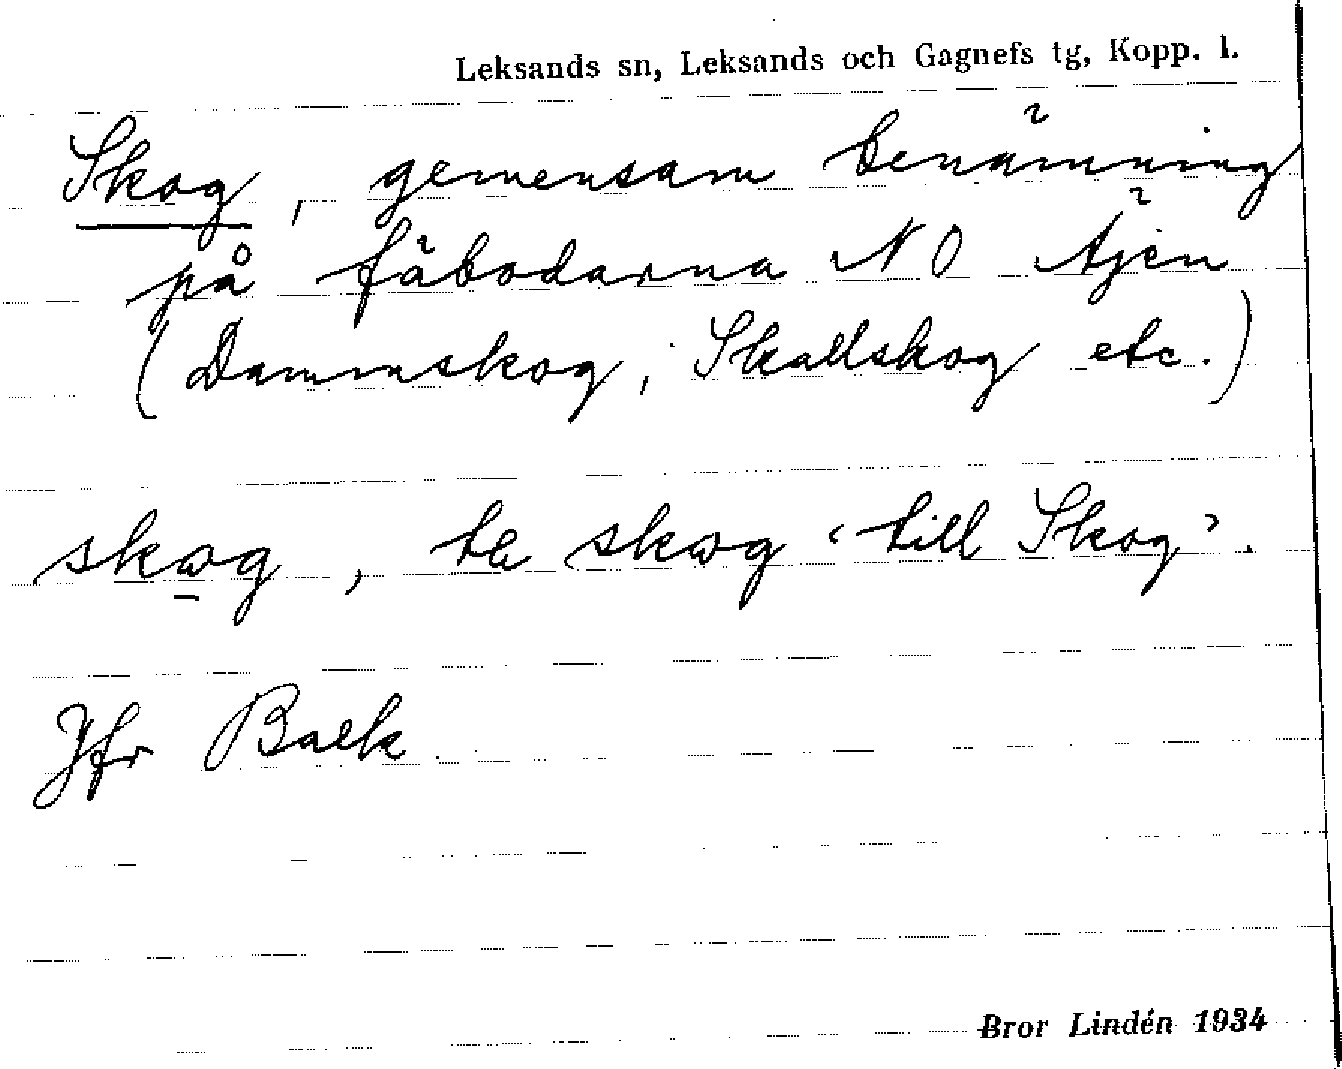 Leksands sn, Leksands och Gagnefs tg, Kopp. l.
Skog, gemensam benämning
på fäbodarna NO Äjen
(Dammskog, Skallskog etc.)
skog, te skog ‘till Skog’.
Jfr Baek
Bror Lindén 1934